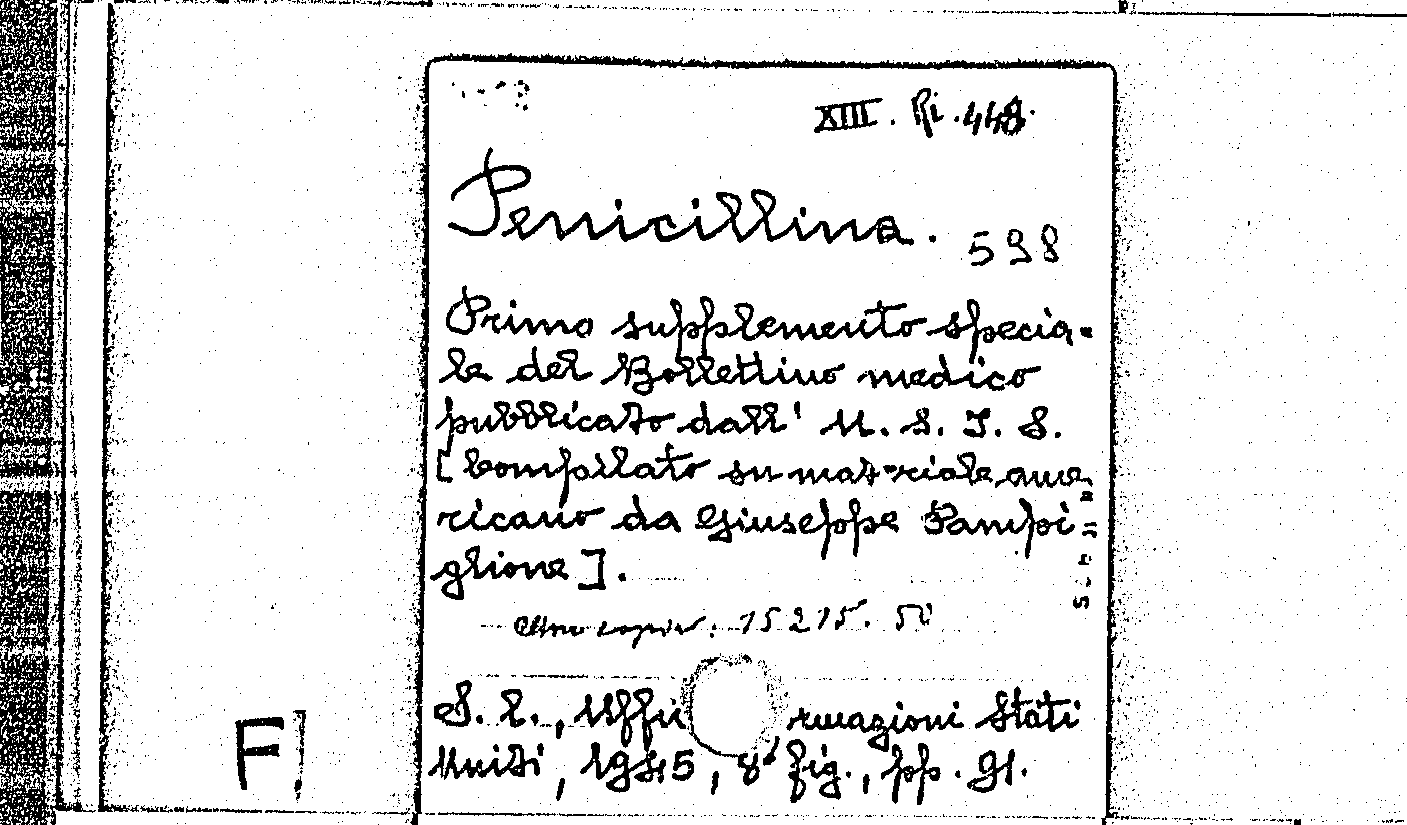 XIII. Ri. 448.
Penicillina.
598
Primo supplemento specia-
le del Bollettino medico
pubblicato dall' U. S. I. S.
[Compilato su materiale ame
ricano da Giuseppe Pampi
glione].
Altra copia: 15215. 50
S. l., Uffi rmazioni Stati
Uniti, 1945, 8° fig., pp. 91.
F